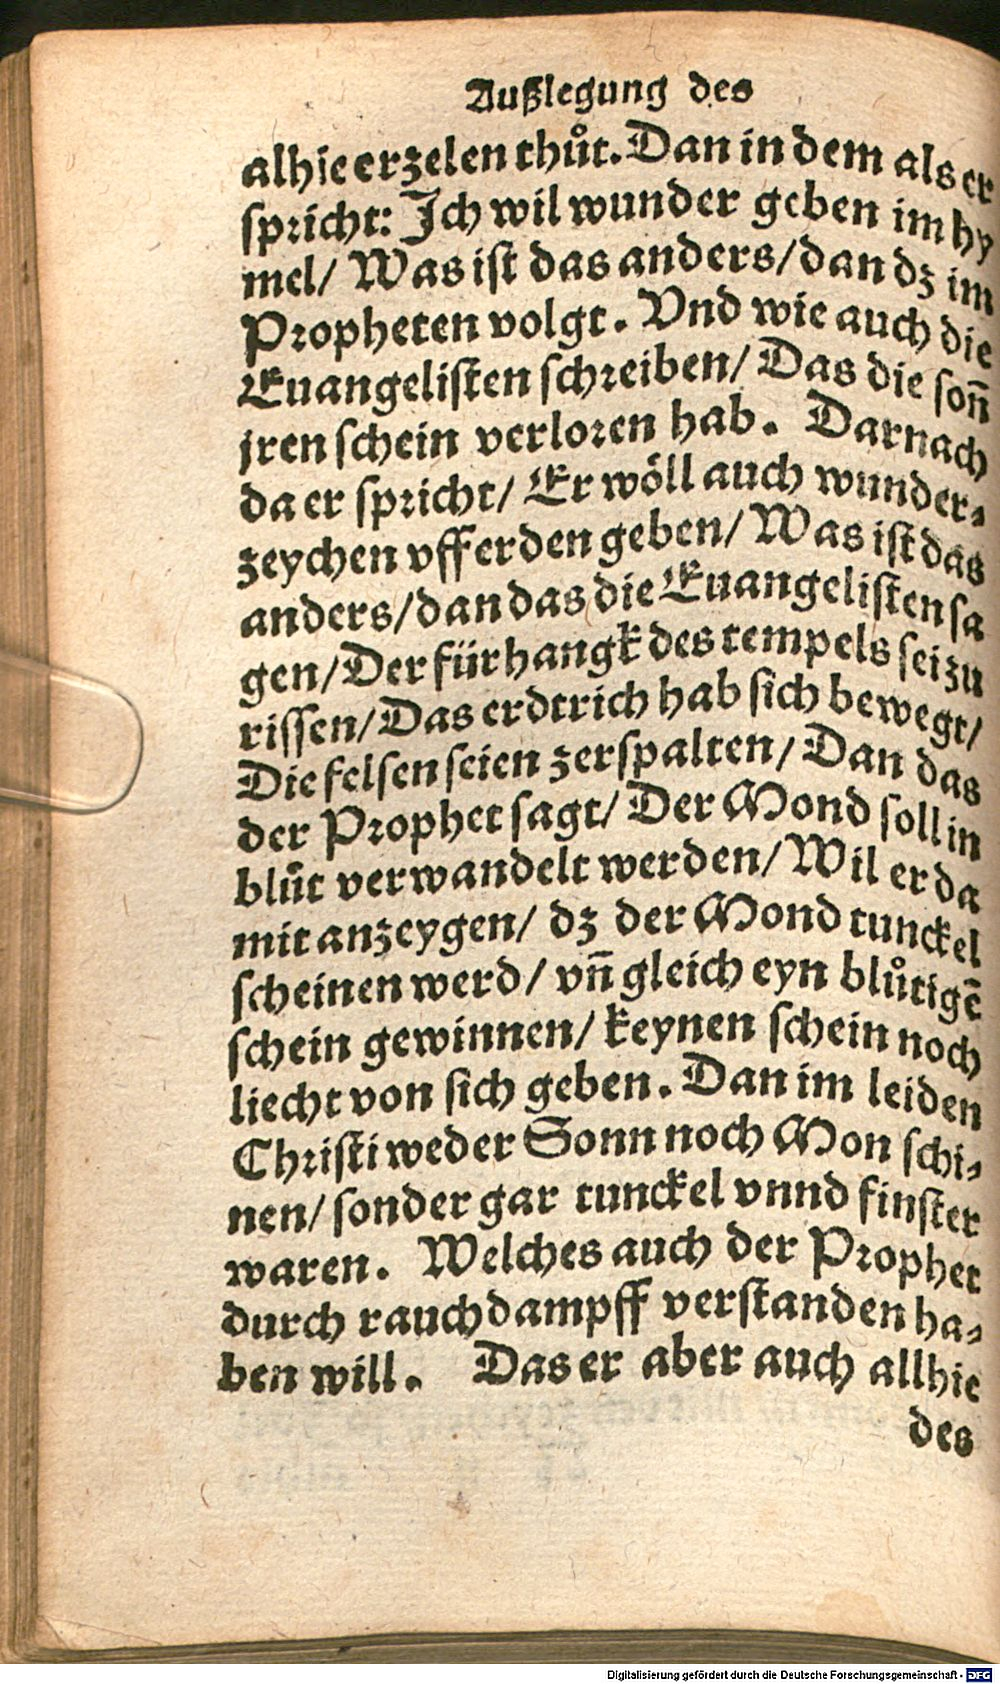 Außlegung des
alhie erzelen thůt. Dan in dem als er
spricht: Ich wil wunder geben im hy
mel/ Was ist das anders/ dan dz im
Propheten volgt. Vnd wie auch die
Euangelisten schreiben/ Das die soñ
jren schein verloren hab. Darnach
da er spricht/ Er wöll auch wunder-
zeychen vff erden geben/ Was ist das
anders/ dan das die Euangelisten sa
gen/ Der fürhangk des tempels sei zu
rissen/ Das erdtrich hab sich bewegt/
Die felsen seien zerspalten/ Dan das
der Prophet sagt/ Der Mond soll in
blůt verwandelt werden/ Wil er da
mit anzeygen/ dz der Mond tunckel
scheinen werd/ vñ gleich eyn blůtigē
schein gewinnen/ keynen schein noch
liecht von sich geben. Dan im leiden
Christi weder Sonn noch Mon schi-
nen/ sonder gar tunckel vnnd finster
waren. Welches auch der Prophet
durch rauchdampff verstanden ha-
ben will. Das er aber auch allhie
des
Digitalisierung gefördert durch die Deutsche Forschungsgemeinschaft - DFG